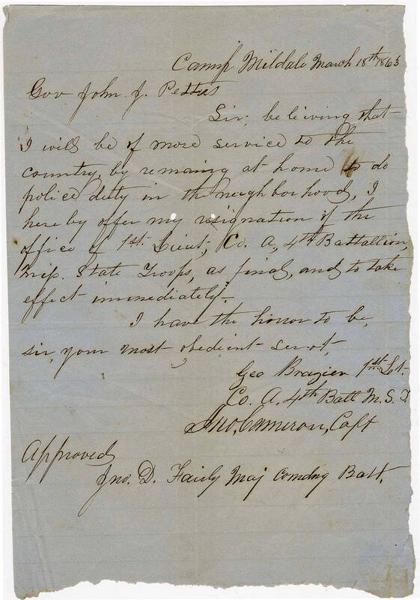 Camp Mildale March 18th 1863
Gov John J. Pettus
Sir, beliving that
I will be of more service to the
country, by remaing at home to do
police duty in the neighborhood, I
here by offer my resignation of the
office of 1st. Lieut, Co. A, 4th Battallion
Miss. State Troops, as final, and to take
effect immediately.
I have the honor to be,
sir, your most obedient servt,
Geo Brazier 1st Lt.
Co. A. 4th Batt M. S. T
Jno. Cameron, Capt
Approved
Jno. D. Fairly Maj comdng Batt.